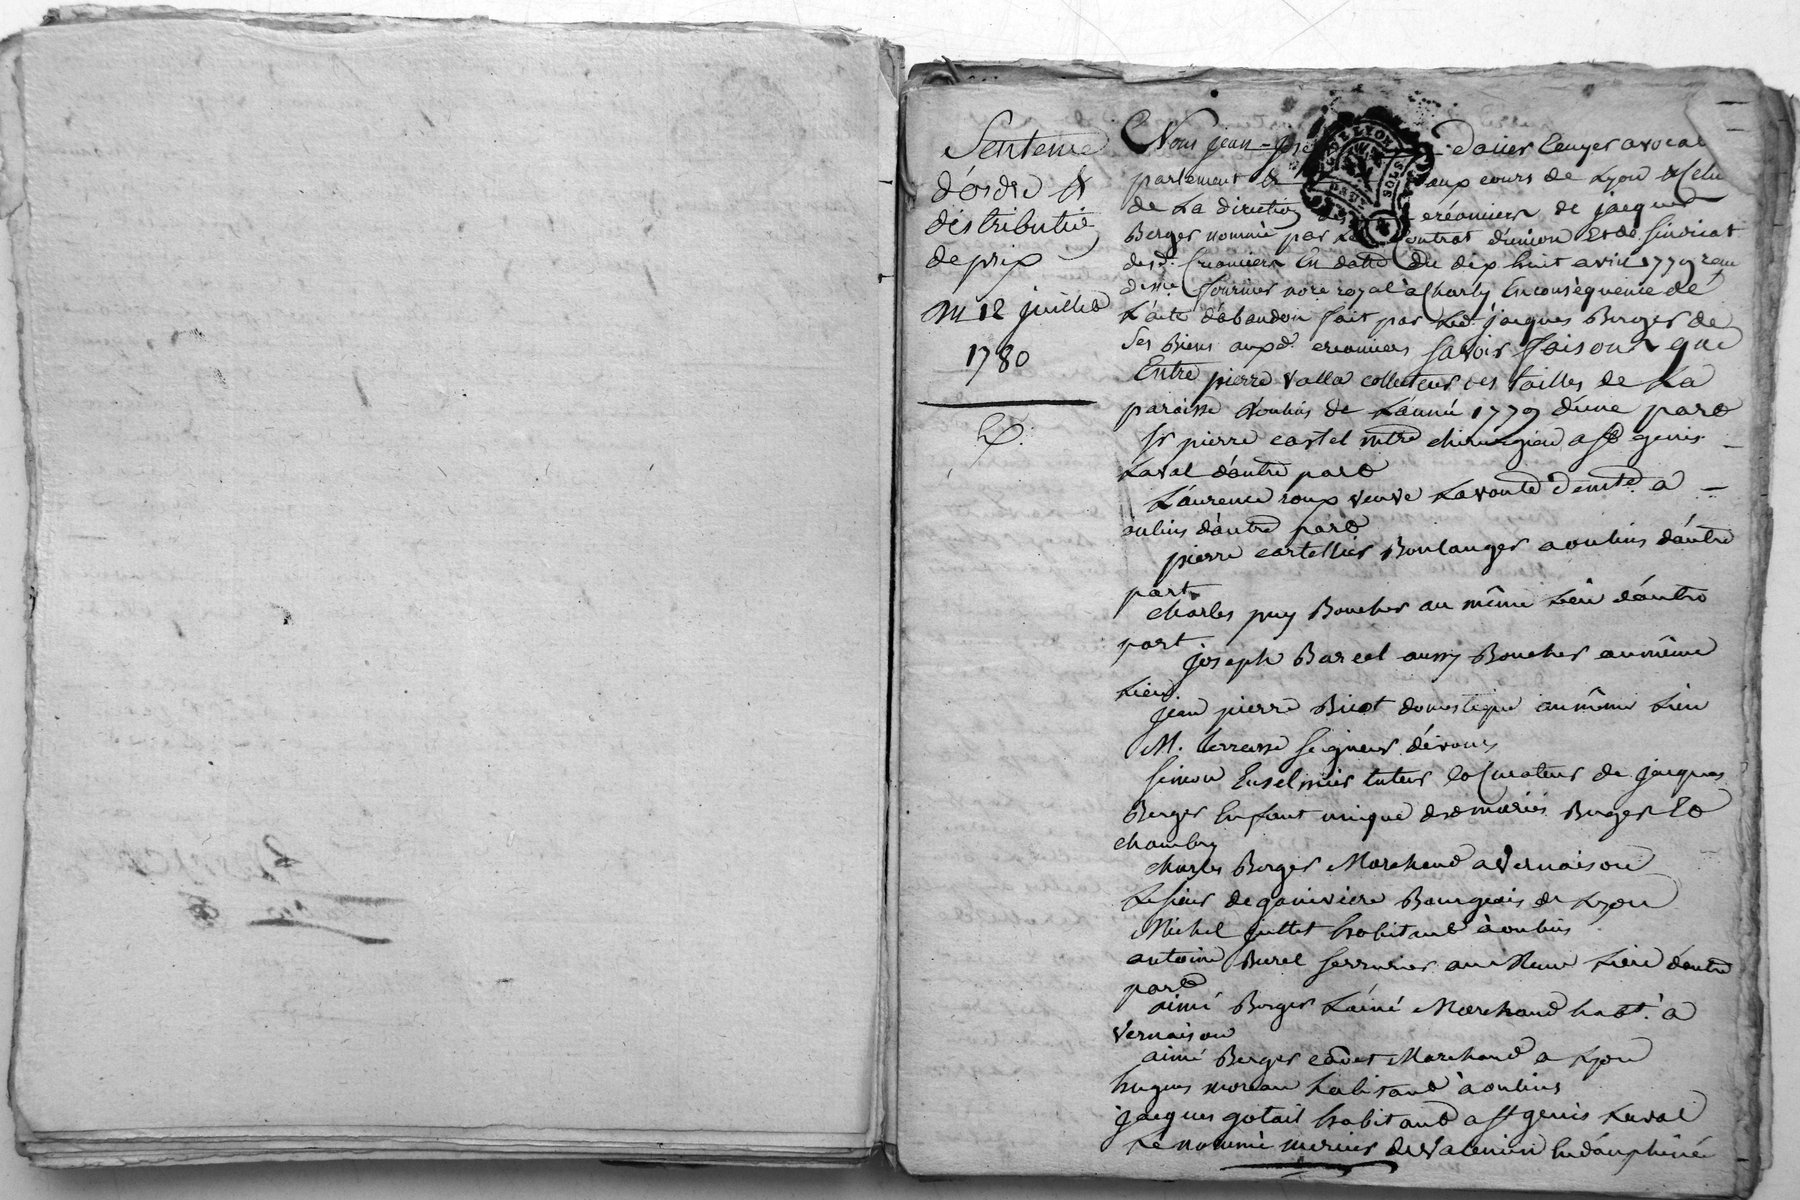 Sentence
d'ordre &
distributive
de prix
Du 12 juillet
1780
Nous jean-pie Daiier Ecuyer avocat
parlement & aux cours de Lyon & Celui
de La direction des créanciers de jacques
Berger nommé par Le Contrat d'union Et de Sindicat
desd. Créanciers En datte du dix huit avril 1779 reçu
fournier nore royal à Charly En conséquence de
L'acte d'abandon fait par Led. jacques Berger de
Ses Biens auxd. créanciers Savoir faisons que
Entre pierre valla collecteur des tailles de La
paroisse d'oulins de L'année 1779 d'une part
Sr pierre castel mtre chirurgien a St genis
Laval d'autre part
Laurence roux veuve Lavonte demte. a
oulins d'autre part
pierre cartellier Boulanger a oulins d'autre
part
charles puy Boucher au même Lieu d'autre
part
joseph Barcel aussy Boucher au même
Lieu
jean pierre Bicot domestique au même Lieu
M. terrasse Seigneur d'ivours
Simon Enselmier tuteur Et Curateur de jacques
Berger Enfant unique des mariés Berger Et
chambry
charles Berger Marchand a Vernaison
Le sieur de ganiviere Bourgeois de Lyon
Michel juttet habitant à oulins
antoine Burel serrurier au même Lieu d'autre
part
aimé Berger L'ainé Marchand habt. à
Vernaison
aimé Berger cadet Marchand a Lyon
hugues moreau habitant à oulins
jacques gotail habitant a St genis Laval
Le nommé murier de Valencin En dauphiné